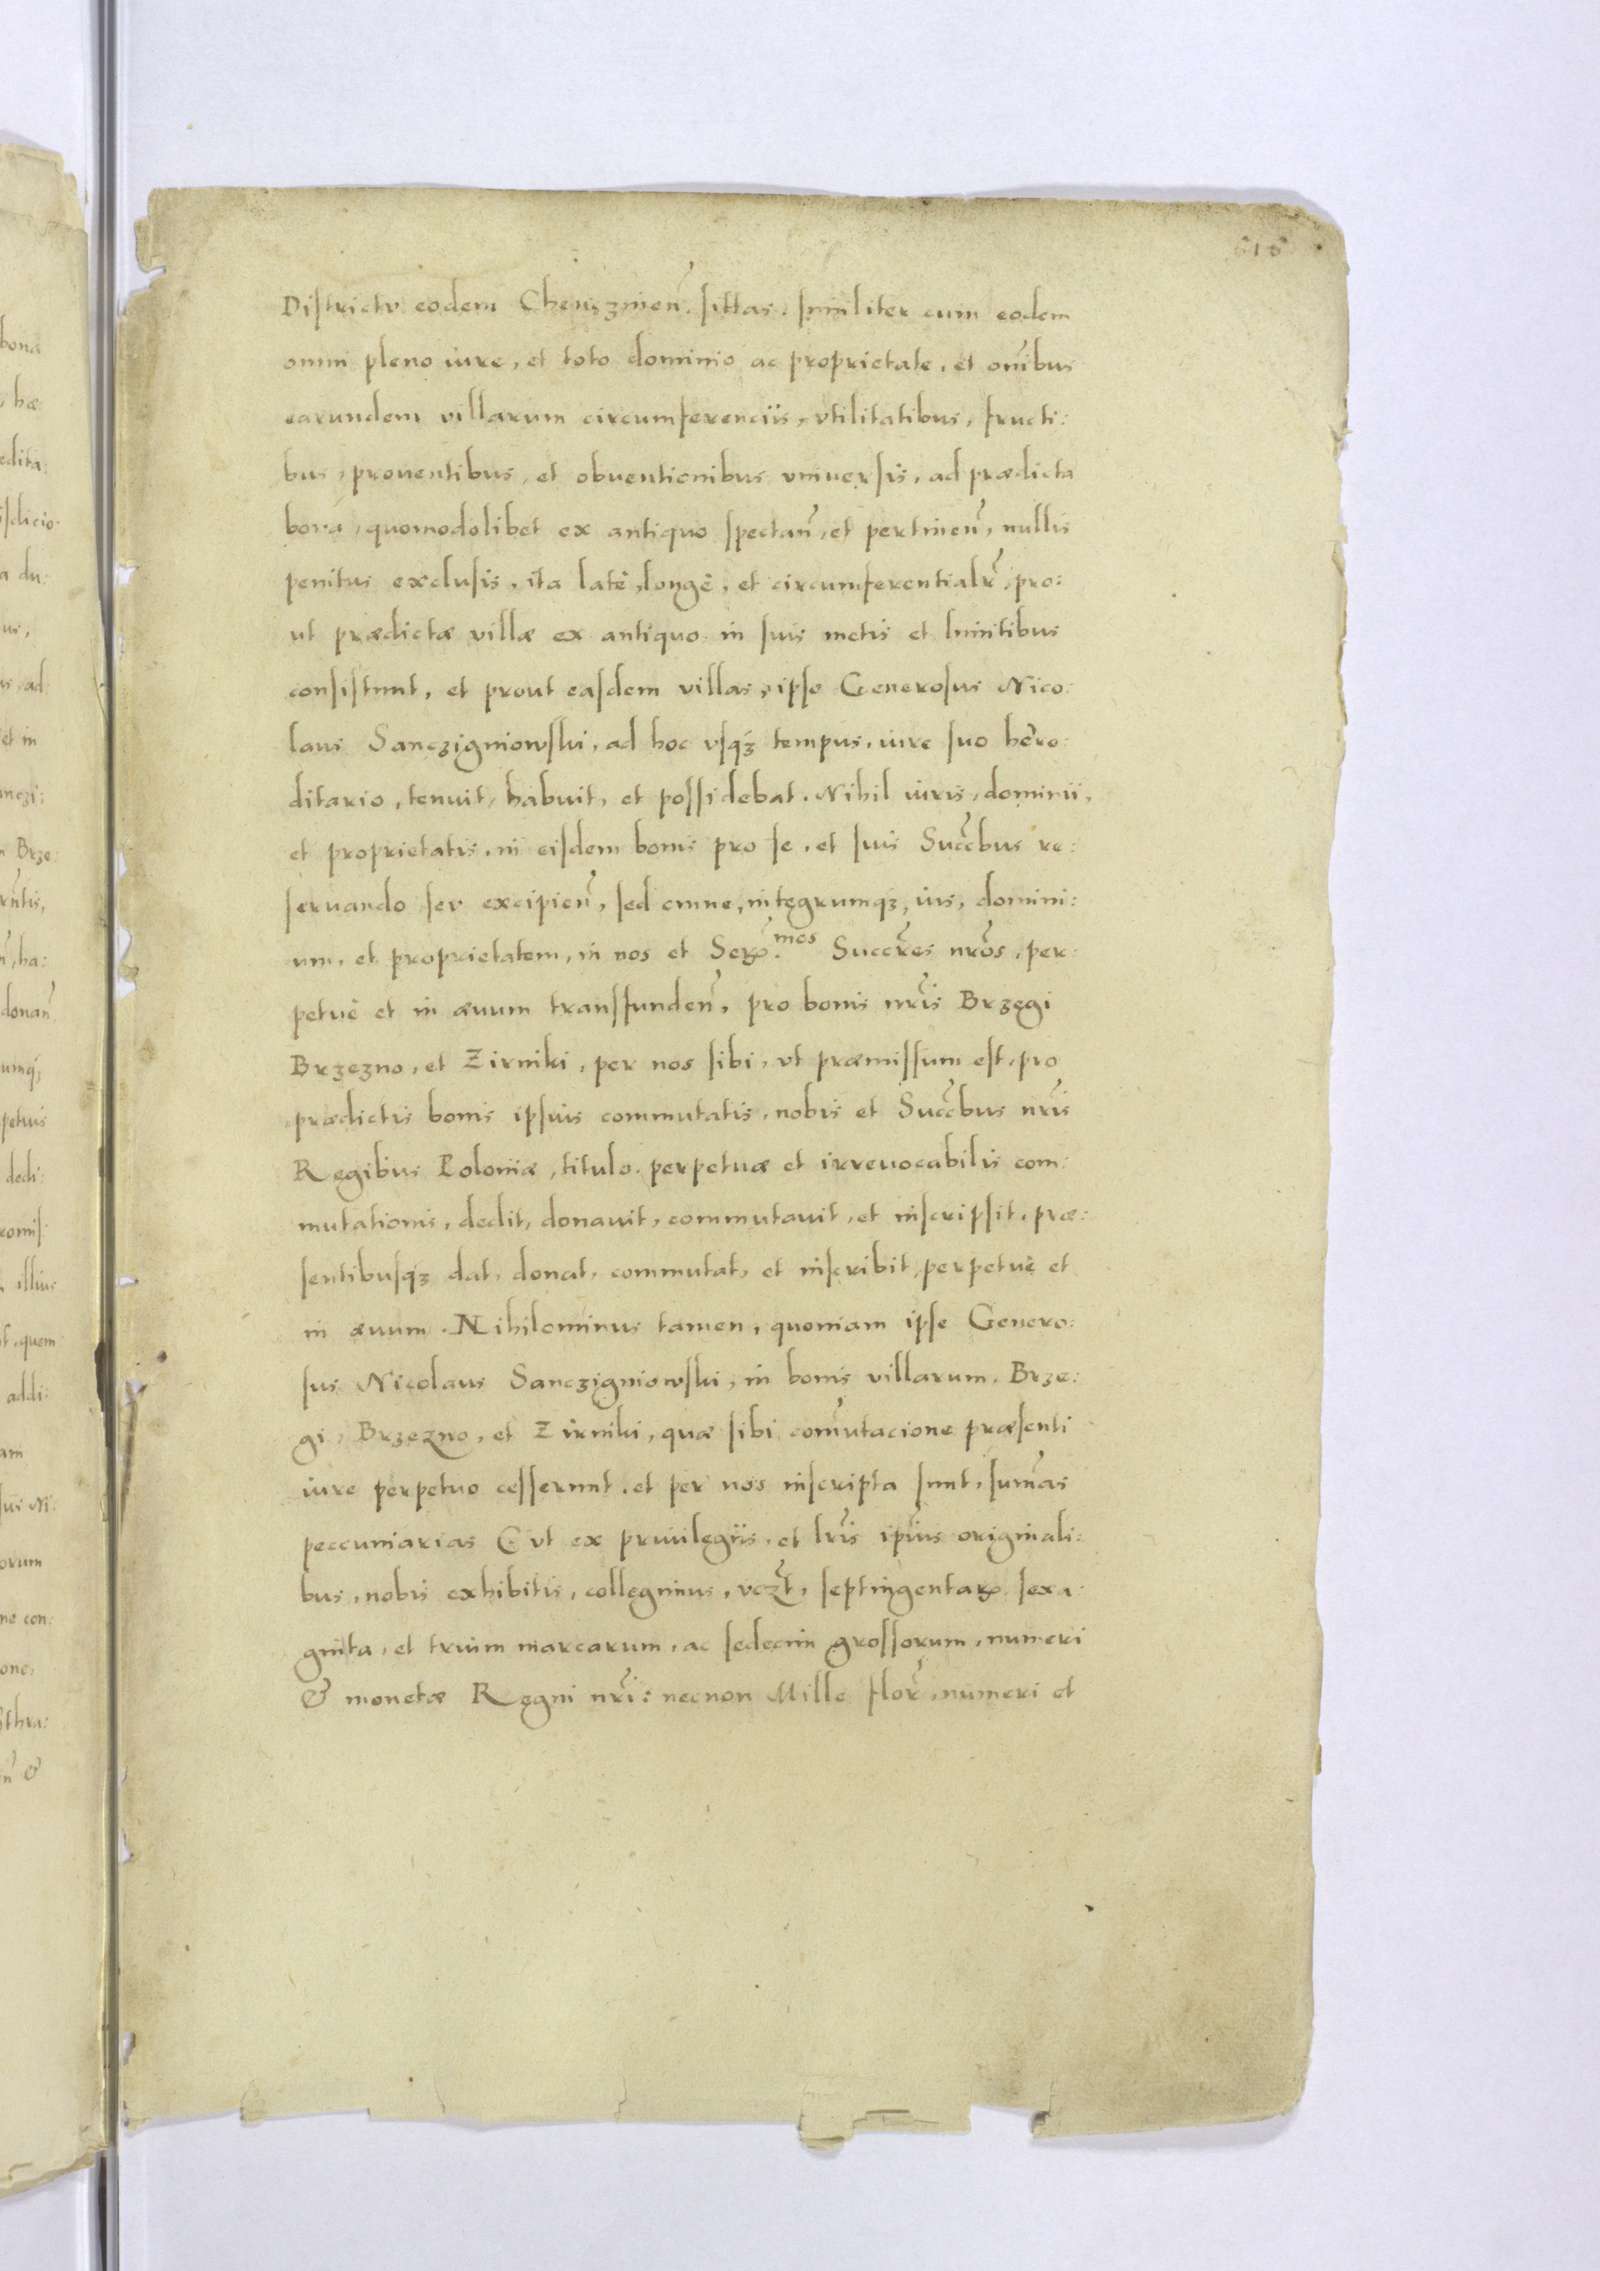 618
Districtu eodem Chenczinień. sittas. similiter cum eodem
omni pleno iure, et toto dominio ac proprietate, et oñibus
earundem villarum circumferenciis, vtilitatibus, fructi:
bus, prouentibus, et obuentionibus vniuersis, ad prædicta
bona, quomodolibet ex antiquo spectañ, et pertineñ, nullis
penitus exclusis, ita latè, longè, et circumferentialr̃, pro:
ut prædictæ villæ ex antiquo in suis metis et limitibus
consistunt, et prout easdem villas, ipse Generosus Nico:
laus Sanczigniowski, ad hoc vsqʒ tempus, iure suo hære:
ditario, tenuit, habuit, et possidebat. Nihil iuris, dominii,
et proprietatis, in eisdem bonis pro se, et suis Succ̃bus re:
seruando seu excipień, sed omne, integrumqʒ, ius, domini:
um, et proprietatem, in nos et Seꝝ.mos Succr̃es nr̃os, per:
petuè et in æuum transfundeñ, pro bonis nr̃is Brzegi
Brzezno, et Zirniki, per nos sibi, vt præmissum est, pro
prædictis bonis ipsius commutatis, nobis et Succ̃bus nr̃is
Regibus Poloniæ, titulo perpetuæ et irreuocabilis com:
mutationis, dedit, donauit, commutauit, et inscripsit, præ:
sentibusqʒ dat, donat, commutat, et inscribit, perpetuè et
in æuum. Nihilominus tamen, quoniam ipse Genero:
sus Nicolaus Sanczigniowski, in bonis villarum. Brze:
gi, Brzezno, et Zirniki, quæ sibi com̃utacione præsenti
iure perpetuo cesserunt, et per nos inscripta sunt, sum̃as
peccuniarias C vt ex priuilegiis, et lr̃is ip̃ius originali:
bus, nobis exhibitis, collegimus, vcz̃t, septingentaꝝ sexa:
ginta, et trium marcarum, ac sedecim grossorum, numeri
& monetæ Regni nr̃i: necnon Mille flor̃, numeri et